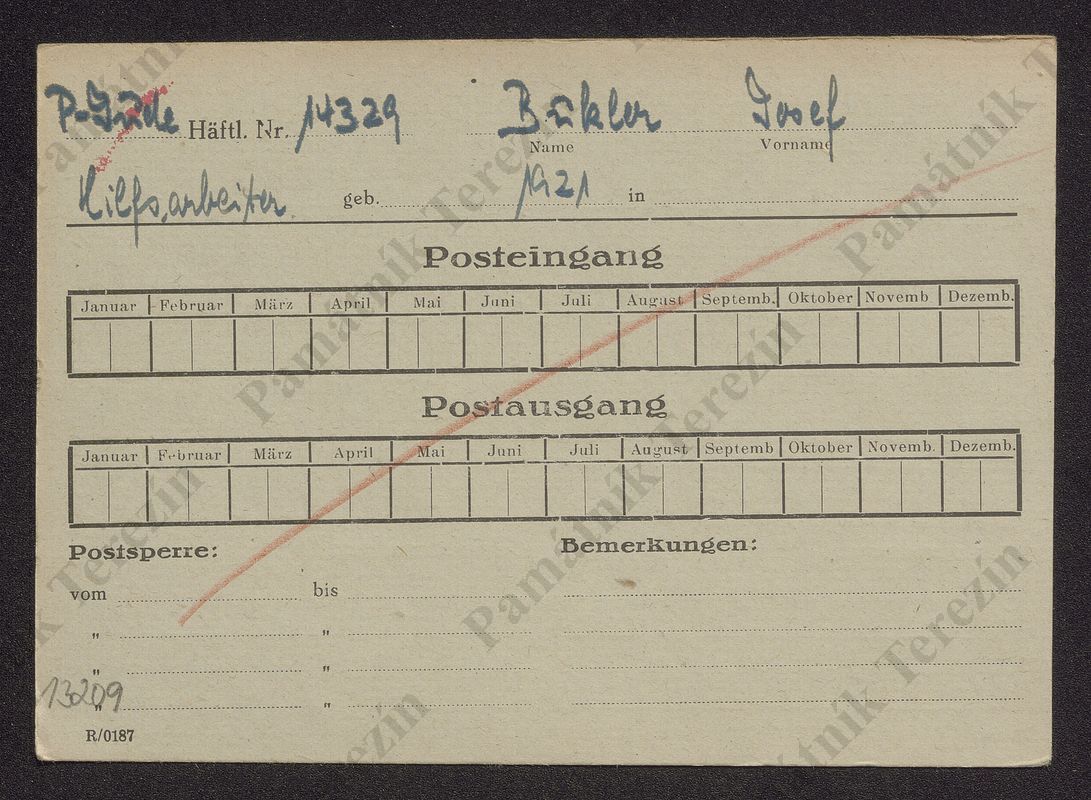 P-Jude Häftl. Nr. 14329 Bükler Josef
Name Vorname
Hilfsarbeiter geb. 1921 in
Posteingang
Januar Februar März April Mai Juni Juli August Septemb. Oktober Novemb Dezemb.
Postausgang
Januar Februar März April Mai Juni Juli August Septemb Oktober Novemb. Dezemb.
Postsperre: Bemerkungen:
vom bis
" "
" "
13209 " "
R/0187
Památník Terezín